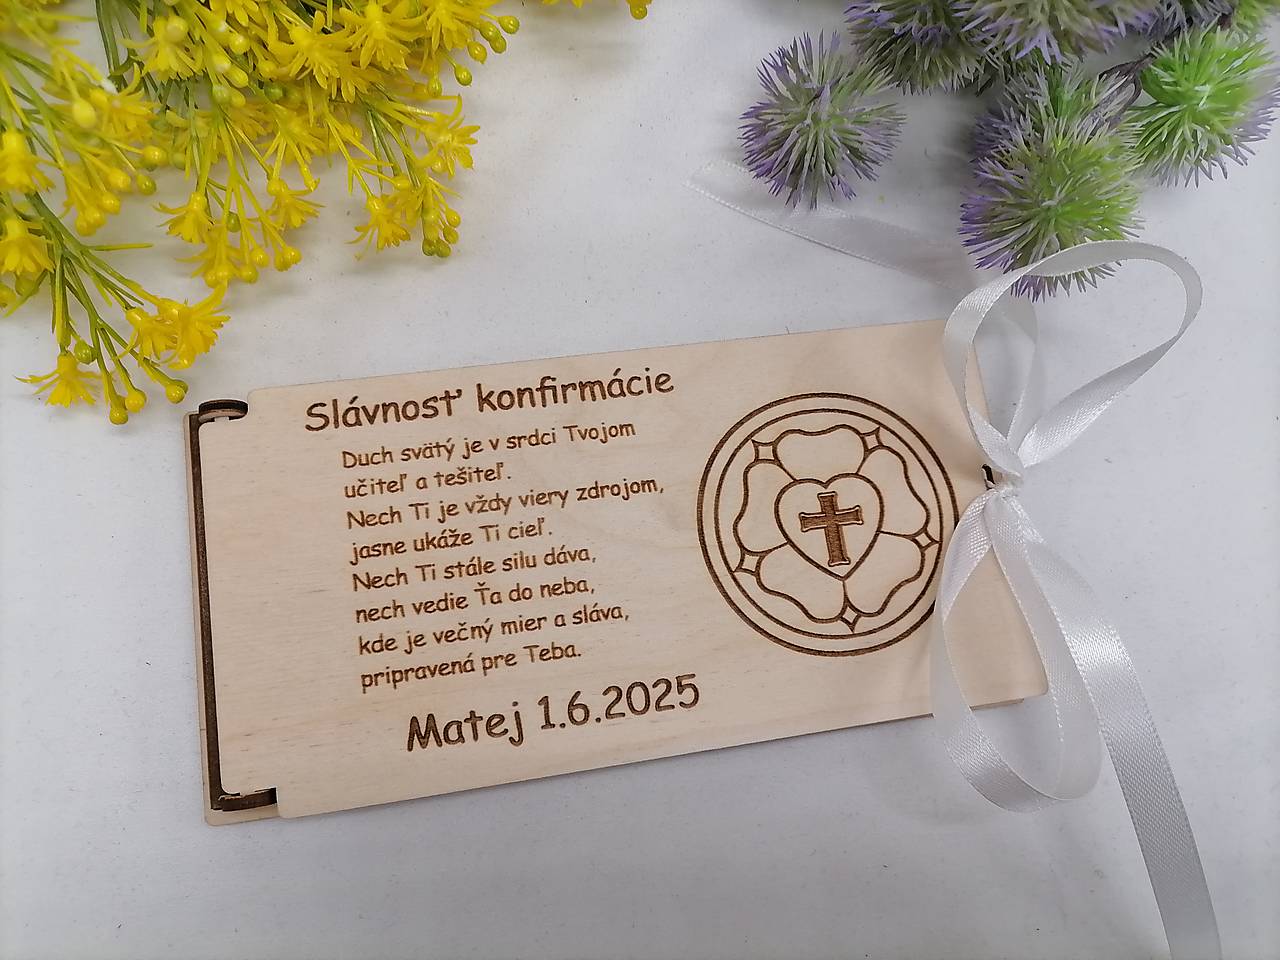 Slávnosť konfirmácie
Duch svätý je v srdci Tvojom
učiteľ a tešiteľ.
Nech Ti je vždy viery zdrojom,
jasne ukáže Ti cieľ.
Nech Ti stále silu dáva,
nech vedie Ťa do neba,
kde je večný mier a sláva,
pripravená pre Teba.
Matej 1.6.2025